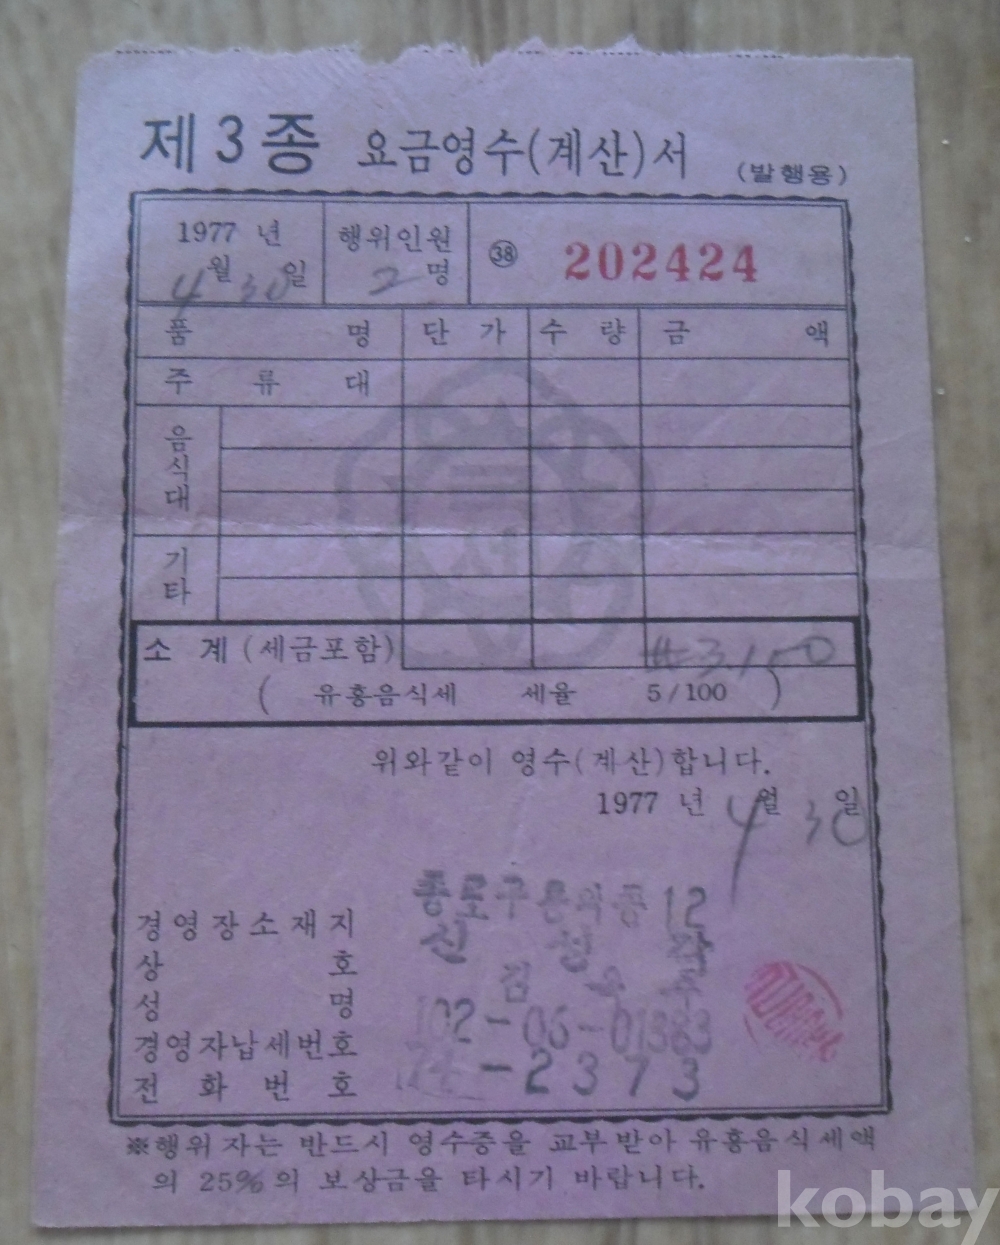 제3종 요금영수(계산)서 (발행용)
1977 년 행위인원 ㊳ 202424
4월 30일 2명
품명 단가 수량 금액
주류대
음식대
기타
소계(세금포함) ₩3,150
( 유흥음식세 세율 5/100 )
위와같이 영수(계산)합니다.
1977 년 4월 30일
종로구 12
경영장소재지
신성각
상호
김
성명
102-06-01383
경영자납세번호
-2373
전화번호
※행위자는 반드시 영수증을 교부받아 유흥음식세액
의 25%의 보상금을 타시기 바랍니다.
kobay